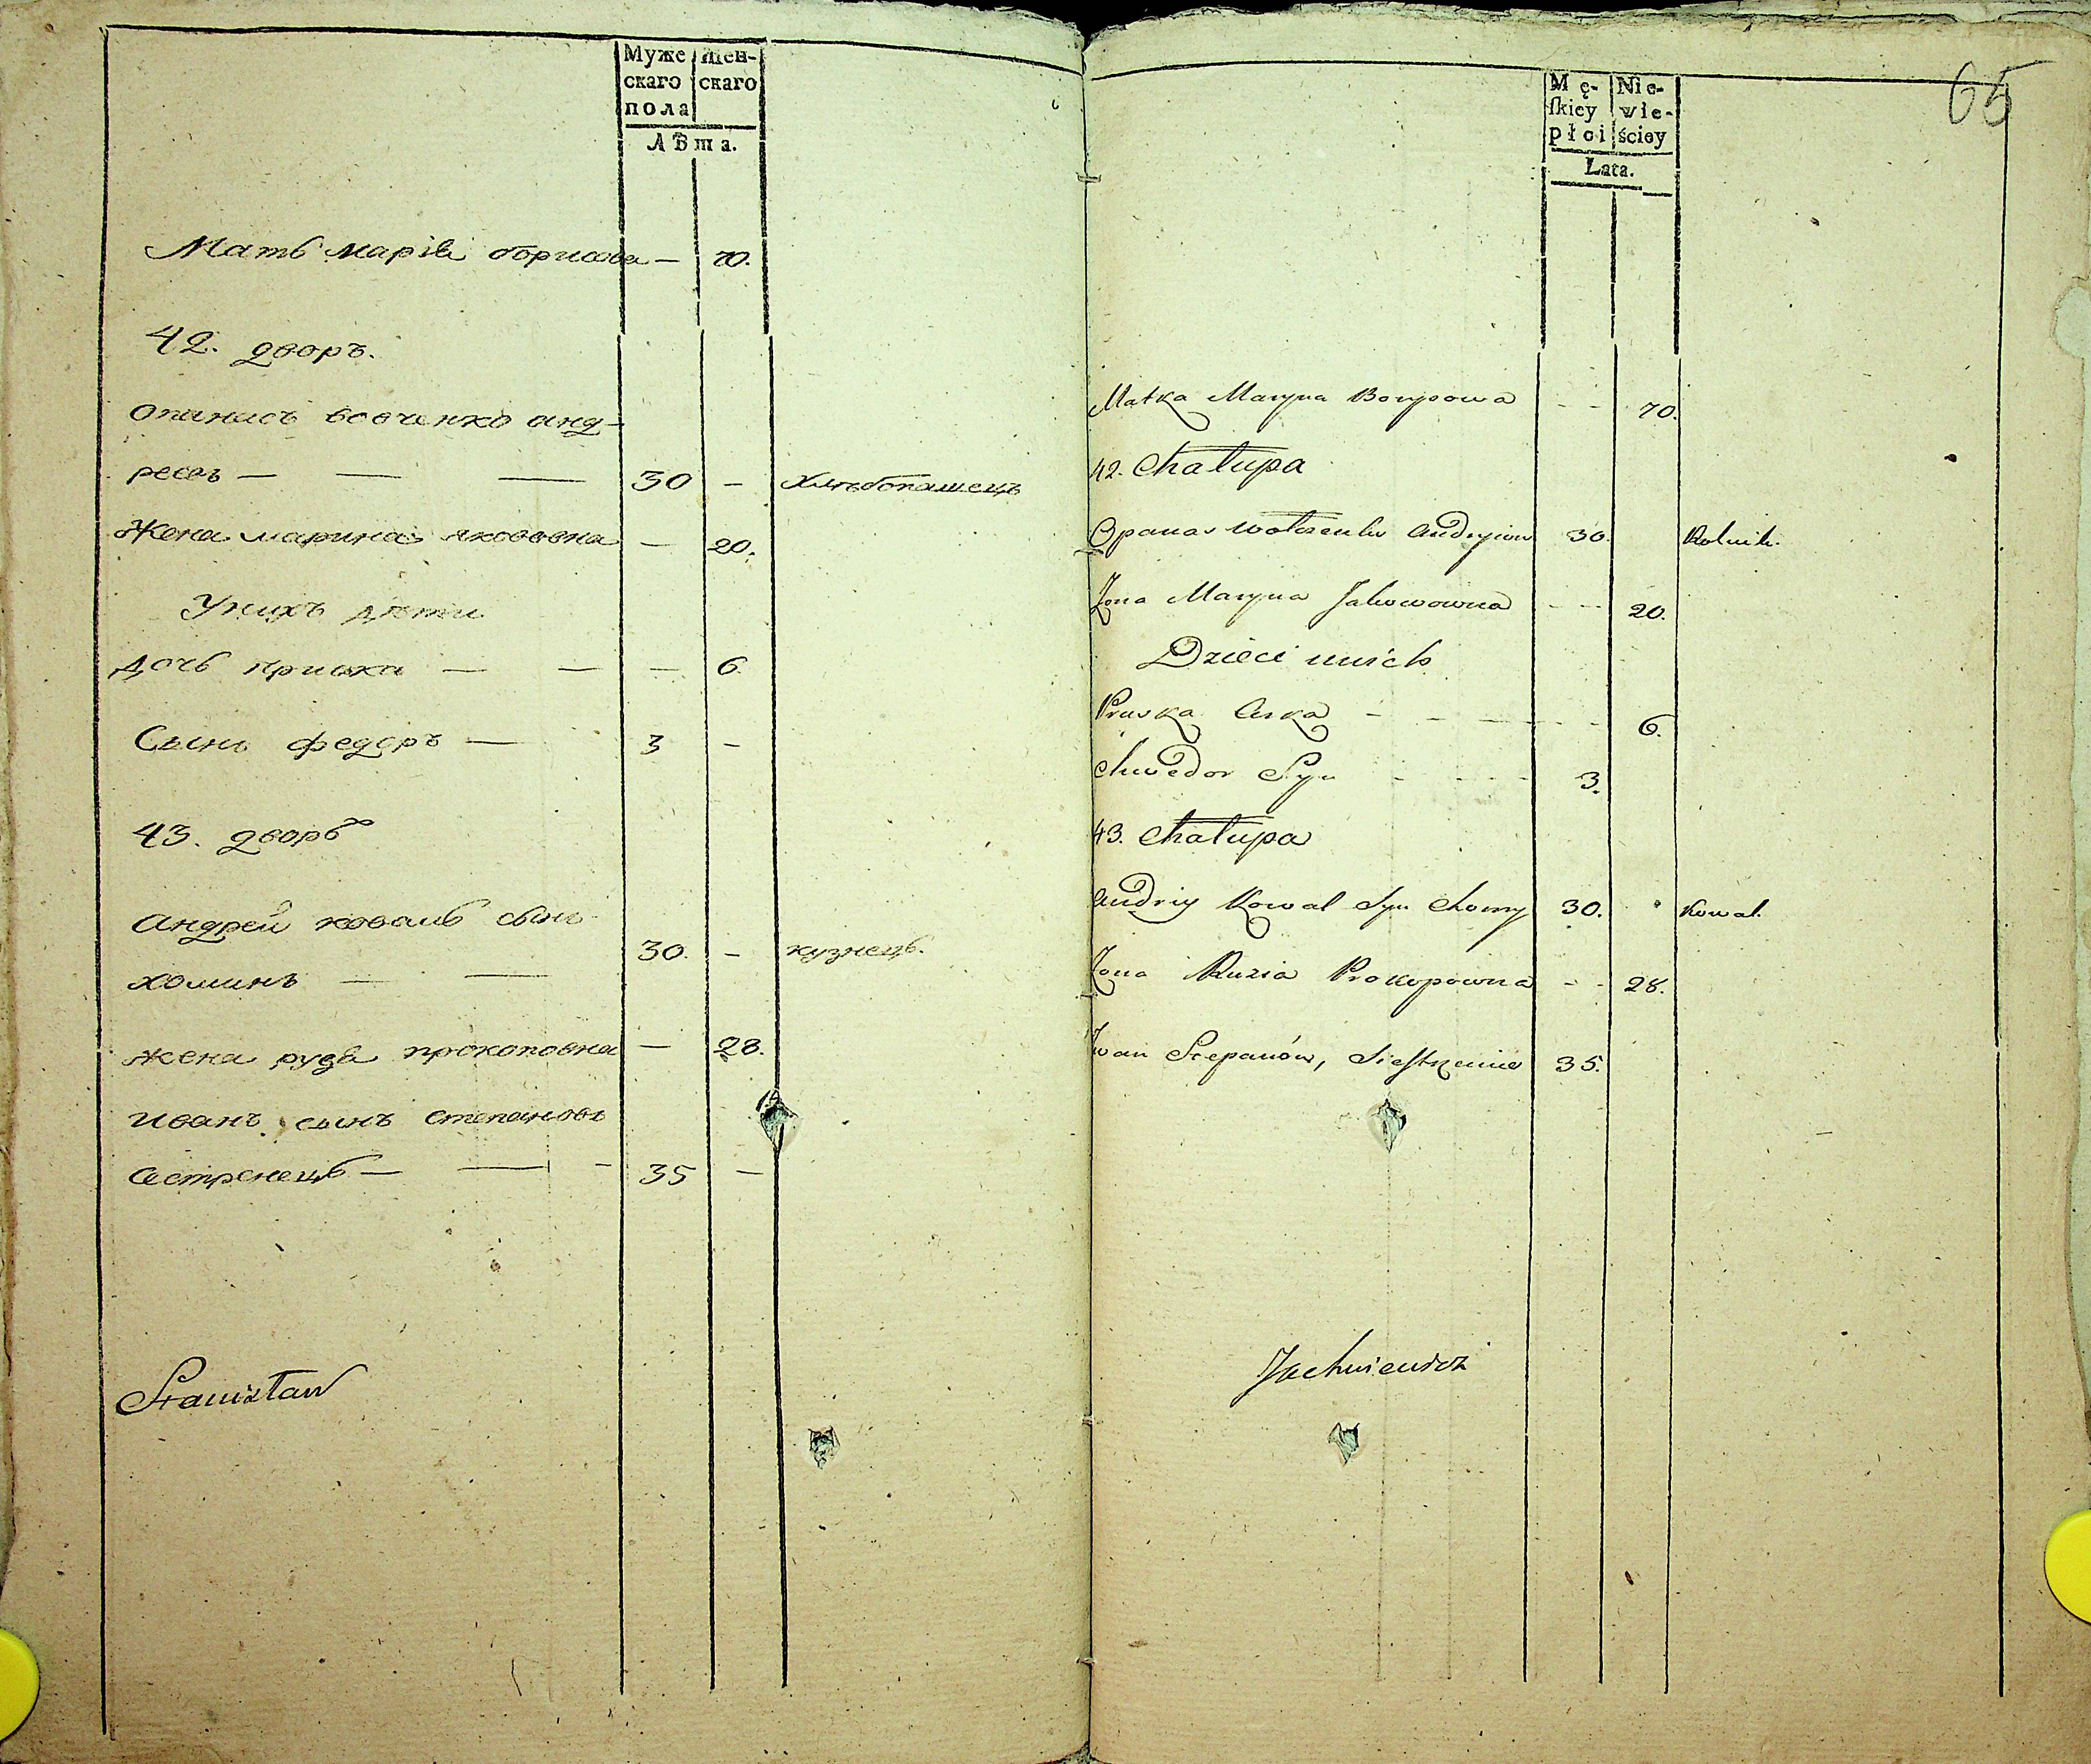 Муже
скаго
пола
жен-
скаго
Лѣта.
Мать марія борисова — 70.
42. дворъ.
опанасъ вовченко анд-
реевъ — — — 30 — хлѣбопашецъ
Жена марина якововна — 20.
У нихъ дѣти
Дочь приска — — — 6
Сынъ федоръ — 3 —
43. дворъ
Андрей коваль сынъ
хоминъ — — 30. — кузнецъ.
жена рузя прокоповна — 28.
иванъ сынъ степановъ
сестренецъ — — - 35 —
Stanisław
65
Mę-
skiey
płci
Nie-
wie-
ściey
Lata.
Matka Maryna Borysowa - - 70.
42. Chałupa
Opanas Wołczenko Andryiow 30. Rolnik.
Żona Maryna Jakowowna - - 20.
Dzieci unich
Pruska Curka - - - - 6.
Chwedor Syn - - - 3.
43. Chałupa
Andriy Kowal Syn Chomy 30. Kowal.
Żona Ruzia Prokopowna - - 28.
Iwan Stepanów, Siestrzeniec 35.
Jachniewicz